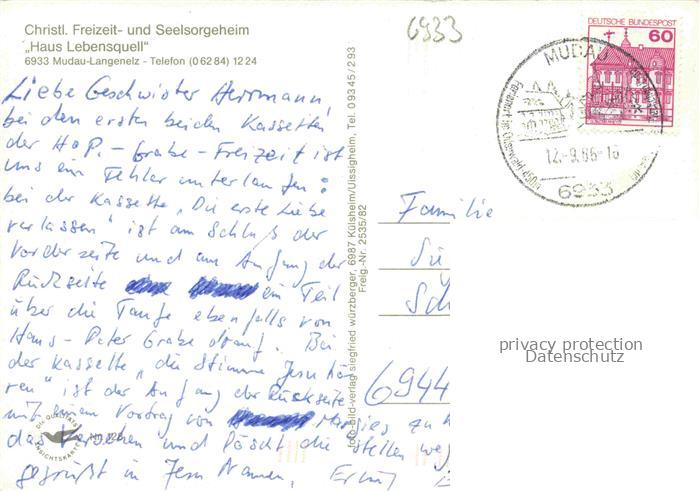 Christl. Freizeit- und Seelsorgeheim
„Haus Lebensquell"
6933 Mudau-Langenelz - Telefon (0 62 84) 12 24
6933
DEUTSCHE BUNDESPOST
60
MUDAU
12.-9.86-16
6933
Liebe Geschwister Herrmann!
bei den ersten beiden Kassetten
der H.P.-Grabe-Freizeit ist
uns ein Fehler unterlaufen:
bei der Kassette „Die erste Liebe
verlassen" ist am Schluß der
Vorderseite und am Anfang der
Rückseite ein Teil
über die Taufe ebenfalls von
Hans-Peter Grabe drauf. Bei
der Kassette „die Stimme Jesu hö
ren" ist der Anfang der Rückseite
mit einem Vortrag von
das Versehen und löscht die Stellen weg
gegrüßt in Jesu Namen,
foto-bild-verlag siegfried würzberger, 6987 Külsheim/Uissigheim, Tel. 0 93 45/2 93
Freig.-Nr. 2535/82
Familie
6944
privacy protection
Datenschutz
DIE QUALITÄTS
ANSICHTSKARTE